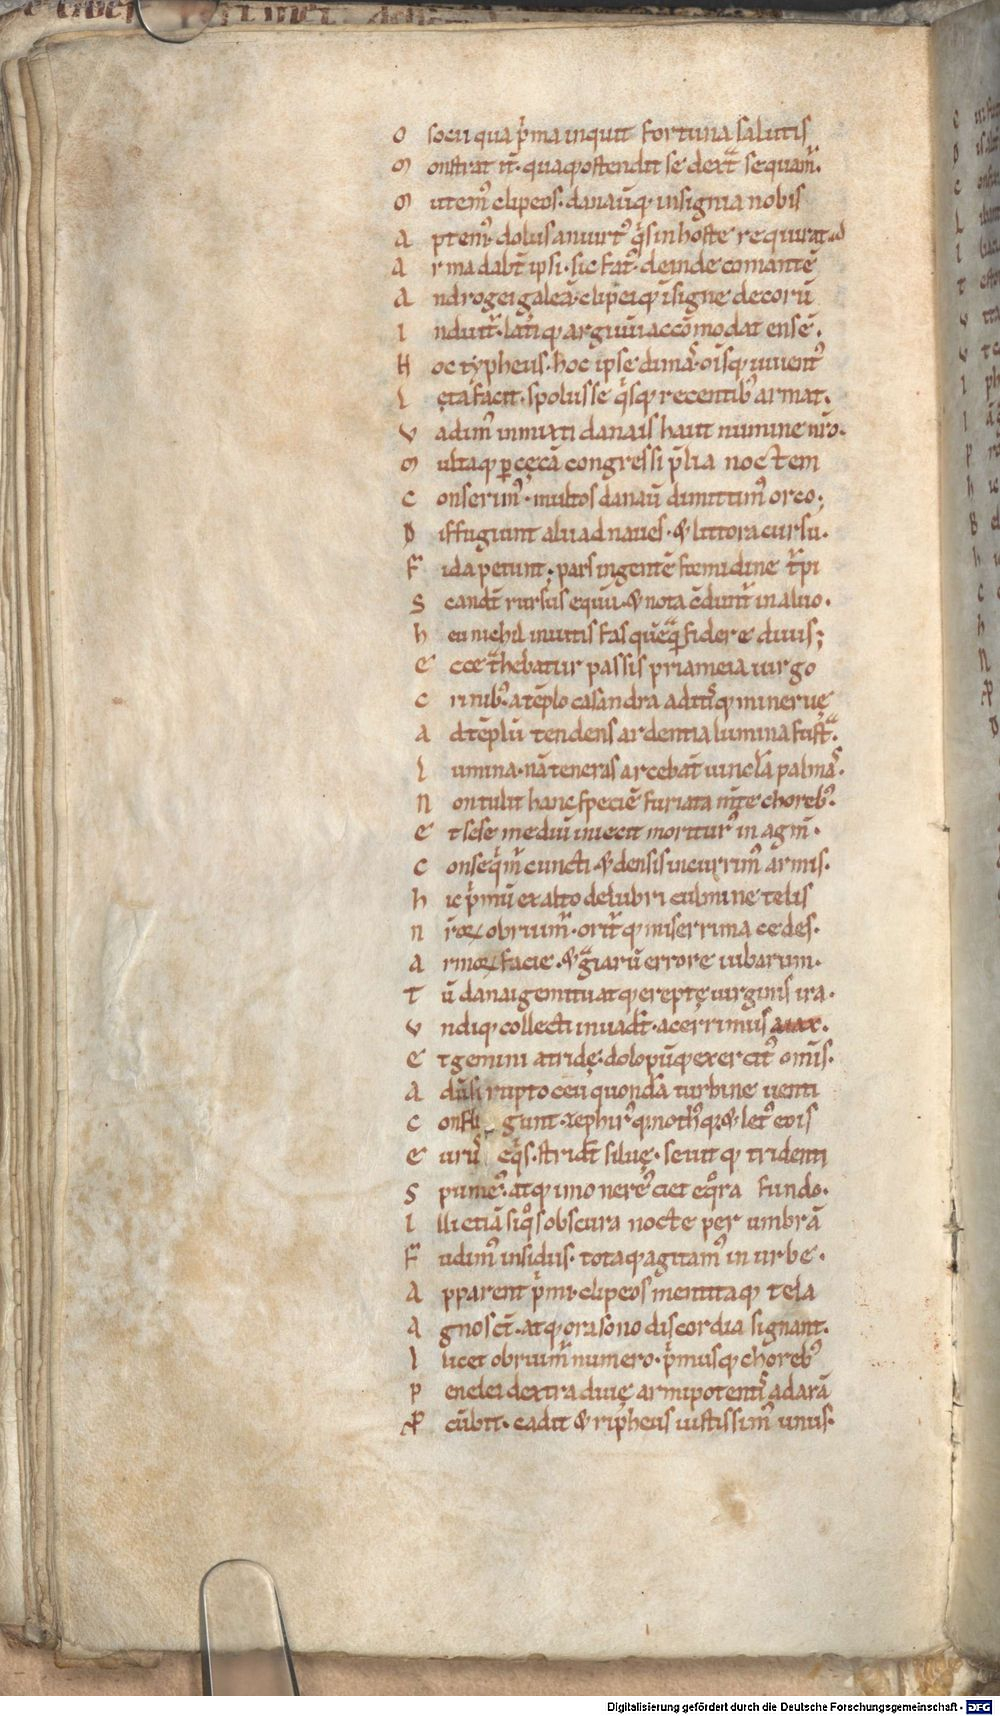 O socii qua p̾ma inquit fortuna salutis
M onstrat it̅. quaq; ostendit se dext̅ sequam̅.
M utem᾽ clipeos. danau̅q; insignia nobis
A ptem᾽. dolus an uirt᾽ q̾s in hoste requirat
A rma dabt̅ ipsi. sic fat᾽. deinde comante̅
A ndrogei galea̅. clipeiq; i̅signe decoru̅
I nduit᾽. lat̾iq; argiuu̅ acco̅modat ense̅.
H oc rypheus. hoc ipse dimas. ois̅q; iuuent᾽
L ęta facit. spoliis se q̾sq; recentib᾽ armat.
V adim᾽ inmixti danais haut numine nr̅o.
M ultaq; p̲ cęca̅ congressi p̅lia noctem
C onserim᾽. multos danau̅ dimittim᾽ orco;
D iffugiunt alii ad naues. & littora cursu.
F ida petunt; pars ingente̅ formidine t̅pi
S candt̅ rursus equu̅. & nota c̅dunt̅ in aluo.
H eu nichil inuitis fas que̅q̅ fidere diuis;
E cce trahebatur passis priameia uirgo
C rinib᾽. a te̅plo casandra aditisq; mineruę
A d cęlu̅ tendens ardentia lumina frust̅.
L umina. na̅ teneras arcebat̅ uincla palmas.
N on tulit hanc specie̅ furiata m̅te choreb᾽.
E t sese mediu̅ iniecit moritur᾽ in agm̅.
C onseq̾m̅ cuncti. & densis incurrim᾽ armis.
H ic p̾mu̅ ex alto delubri culmine telis
N r̅oꝝ obruim̅. orit̅q; miserrima cedes.
A rmoꝝ facie. & g̅iaru̅ errore iubarum.
T u̅ danai gemitu atq; ereptę uirginis ira.
V ndiq; collecti inuadt̅. acerrimus aiax.
E t gemini atridę. dolopu̅q; exercit᾽ om̅is.
A duersi rupto ceu quonda̅ turbine uenti
C onfligunt. zephir᾽q; noth᾽q; & let᾽ eois
E uru᾽ eq̾s. stridt̅ siluę. seuitq; tridenti
S pume᾽. atq; imo nere᾽ ciet eq̊ra fundo.
I lli etia̅ siq̊s obscura nocte per umbra̅
F udim᾽ insidiis. totaq; agitam᾽ in urbe.
A pparent p̾mi. clipeos mentitaq; tela
A gnosct̅. atq; ora sono discordia signant.
I licet obruim̅ numero. p̾musq; choreb᾽
P enelei dextra diuię armipotentis ad ara̅
P cu̅bit. cadit & ripheus iustissim᾽ unus.
Digitalisierung gefördert durch die Deutsche Forschungsgemeinschaft - DFG